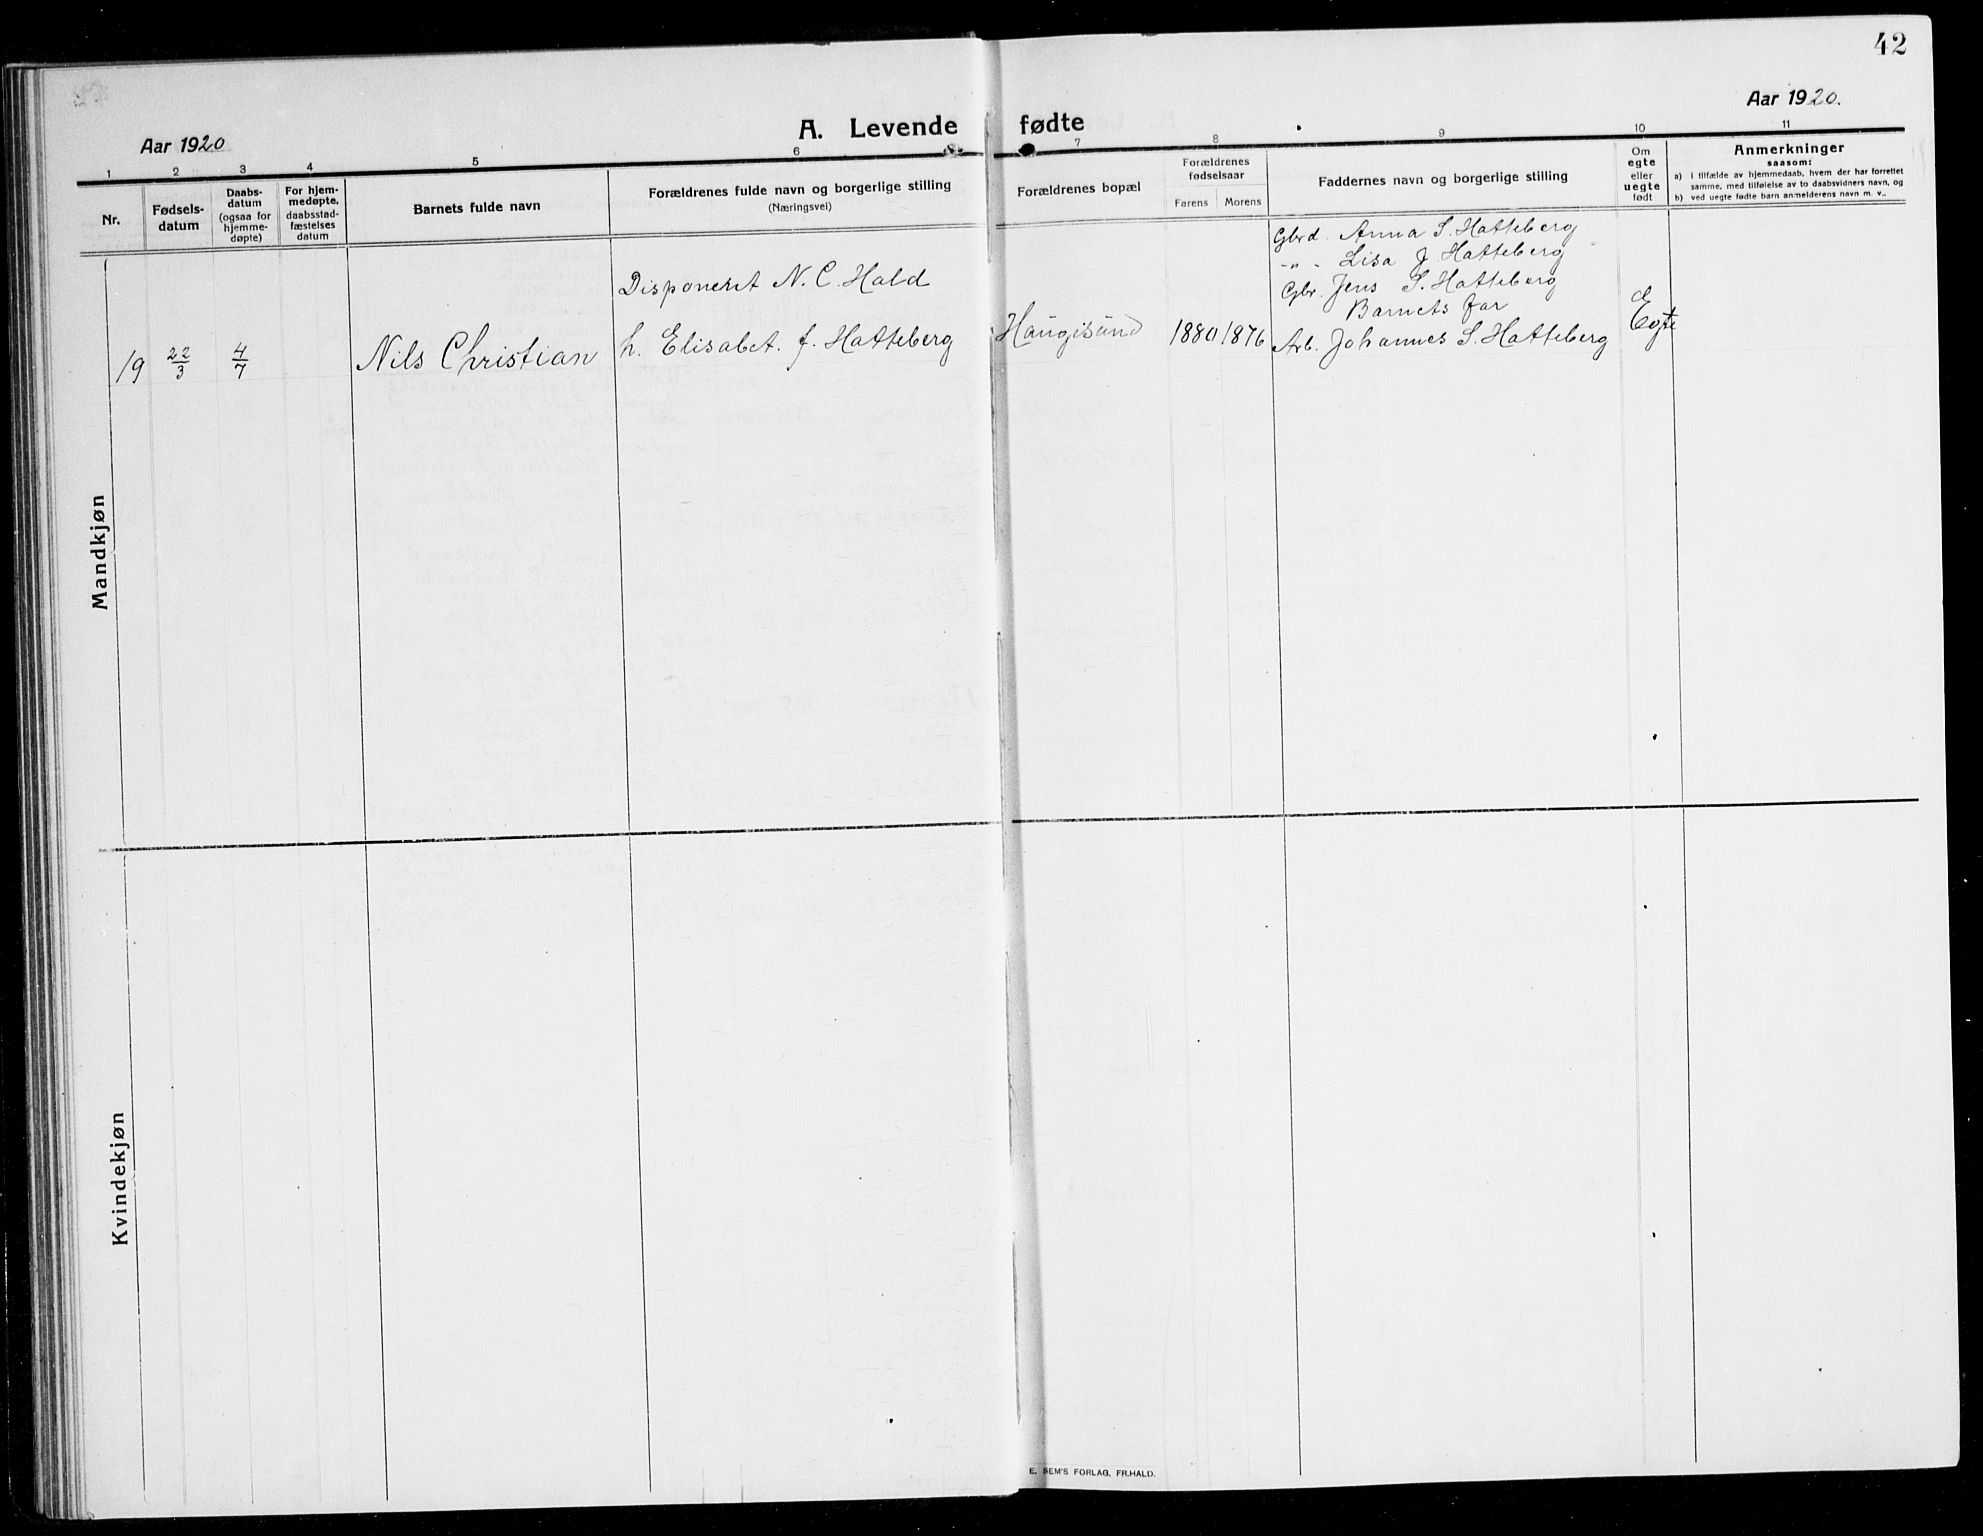 42
Aar 1920
A. Levende fødte
Aar 1920.
1 2 3 4 5 6 7 8 9 10 11
Nr.
Fødsels-
datum
Daabs-
datum
(ogsaa for
hjemme-
døpte)
For hjem-
medøpte,
daabsstad-
fæstelses
datum
Barnets fulde navn
Forældrenes fulde navn og borgerlige stilling
(Næringsvei)
Forældrenes bopæl
Forældrenes
fødselsaar
Farens Morens
Faddernes navn og borgerlige stilling
Om
egte
eller
uegte
født
Anmerkninger
saasom:
a) i tilfælde av hjemmedaab, hvem der har forrettet
samme, med tilføielse av to daabsvidners navn, og
b) ved uegte fødte barn anmelderens navn m. v..
Mandkjøn
19 22/3 4/7
Nils Christian
Disponent N. C. Hald
h. Elisabet. f. Hatteberg
Haugisund
1880 1876
Gbrd. Anna S. Hatteberg
-"- Lisa J Hatteberg
Gbr. Jens S. Hatteberg
Barnets far
Arb. Johannes S. Hatteberg
Egte
Kvindekjøn
E. SEM'S FORLAG, FR.HALD.